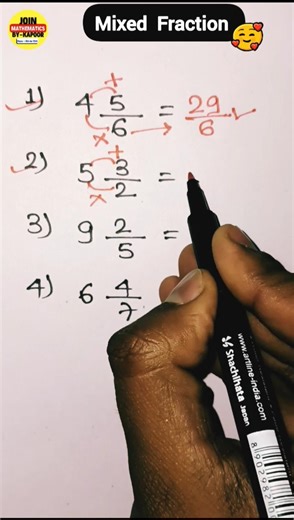 JOIN
MATHEMATICS
BY-KAPOOR
Mixed Fraction
1) 4 5/6 = 29/6
+
×
2) 5 3/2 =
+
×
3) 9 2/5 =
4) 6 4/7
www.artline-india.com
Shachihata Japan
8902982